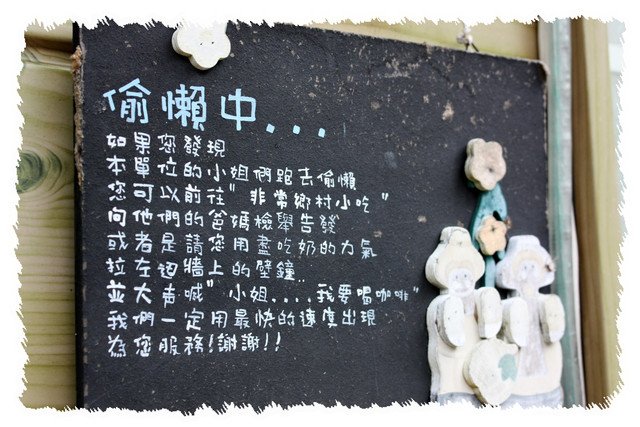 偷懶中...
如果您發現
本單位的小姐們跑去偷懶
您可以前往"非常鄉村小吃"
向他們的爸媽檢舉告發
或者是請您用盡吃奶的力氣
拉左邊牆上的壁鐘..
並大声喊"小姐....我要喝咖啡"
我們一定用最快的速度出現
為您服務!謝謝!!